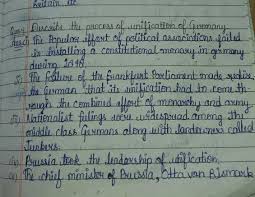 Britain etc
Ques Describe the process of unification of Germany.
Ans(i) The Popular effort of political associations failed
in installing a constitutional monarcy in germany
during 1848.
(ii) The failure of the frankfurt Parliament made realize
the German that its unification had to come th-
rough the combined effort of monarchy and army.
Nationalist felings were widespread among the
middle class Germans along with landowners called
Junkers.
Prussia took the leadership of unification.
The chief minister of Prussia, Otto van Bismark